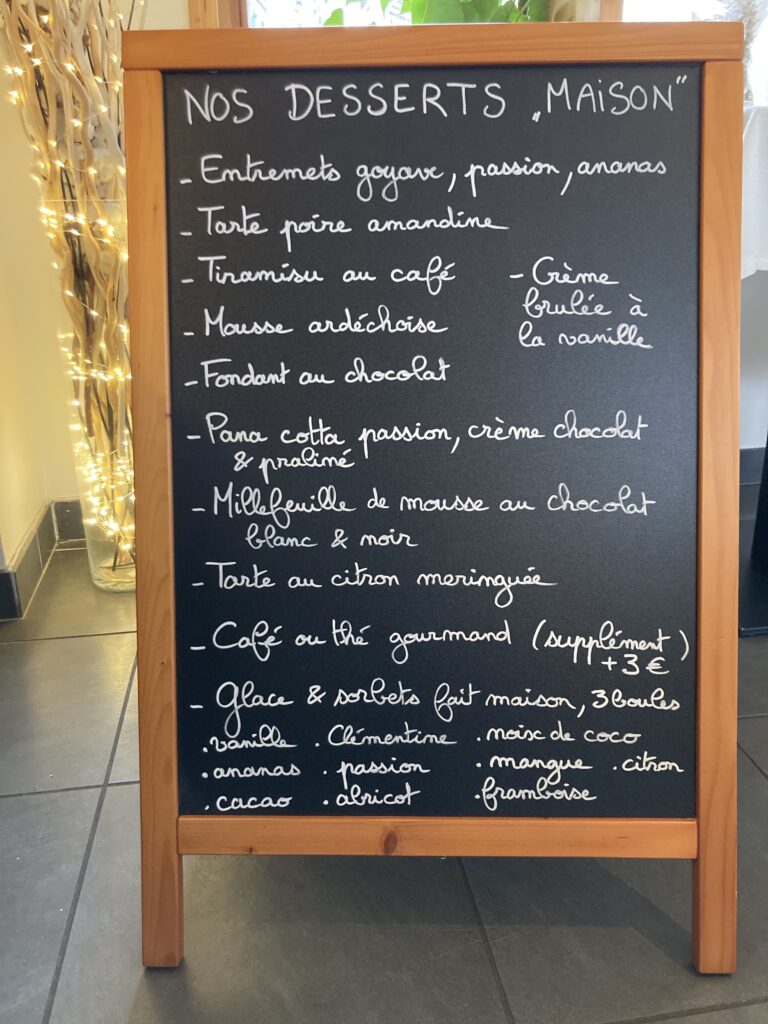 NOS DESSERTS „MAISON"
- Entremets goyave, passion, ananas
- Tarte poire amandine
- Tiramisu au café
- Mousse ardéchoise
- Crème
brulée à
la vanille
- Fondant au chocolat
- Pana cotta passion, crème chocolat
& praliné
- Millefeuille de mousse au chocolat
blanc & noir
- Tarte au citron meringuée
- Café ou thé gourmand (supplément)
+3€
- Glace & sorbets fait maison, 3 boules
. vanille . Clémentine . noix de coco
. ananas . passion . mangue . citron
. cacao . abricot . framboise